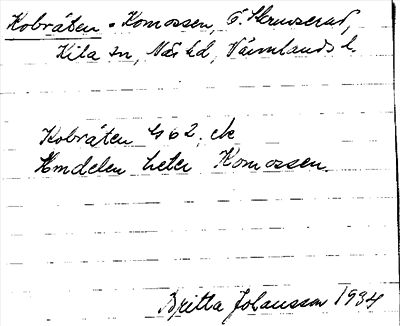 Kobråten = Komossen, Ö. Hermserud,
Kila sn, Näs hd, Värmlands l.
Kobråten 4 6 2, ek
Hmdelen heter Komossen.
Britta Johansson 1934